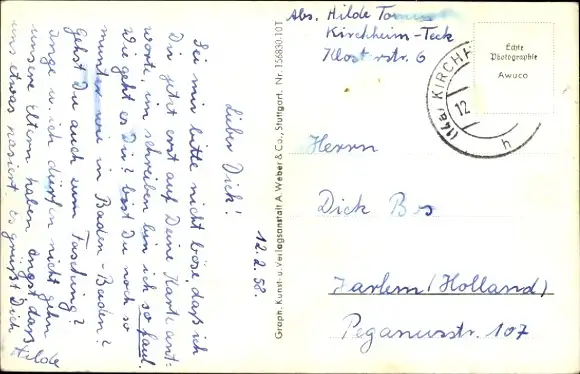 12.2.58.
Lieber Dick!
Sei mir bitte nicht böse, daß ich
Dir jetzt erst auf Deine Karte ant-
worte, im schreiben bin ich so faul.
Wie geht es Dir? bist Du noch so
munter wie in Baden-Baden?
Gehst Du auch zum Fasching?
Inge u. ich dürfen nicht gehn
unsere Eltern haben Angst daß
uns etwas passiert. Es grüßt Dich
Hilde
Graph. Kunst- u. Verlagsanstalt A. Weber & Co., Stuttgart. Nr. 156830 10 T
Abs. Hilde
Kirchheim-Teck
Klosterstr. 6
Echte
Photographie
Awuco
(14a) KIRCHH
12
h
Herrn
Dick
Harlem (Holland)
Peganusstr. 107